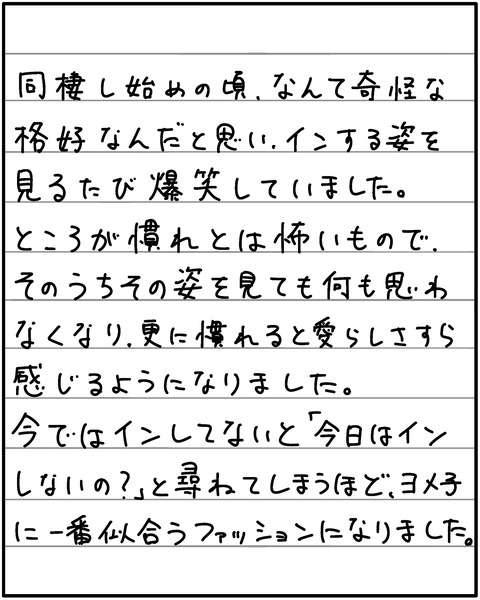 同棲し始めの頃、なんて奇怪な
格好なんだと思い、インする姿を
見るたび爆笑していました。
ところが慣れとは怖いもので、
そのうちその姿を見ても何も思わ
なくなり、更に慣れると愛らしさすら
感じるようになりました。
今ではインしてないと「今日はイン
しないの?」と尋ねてしまうほど、ヨメ子
に一番似合うファッションになりました。